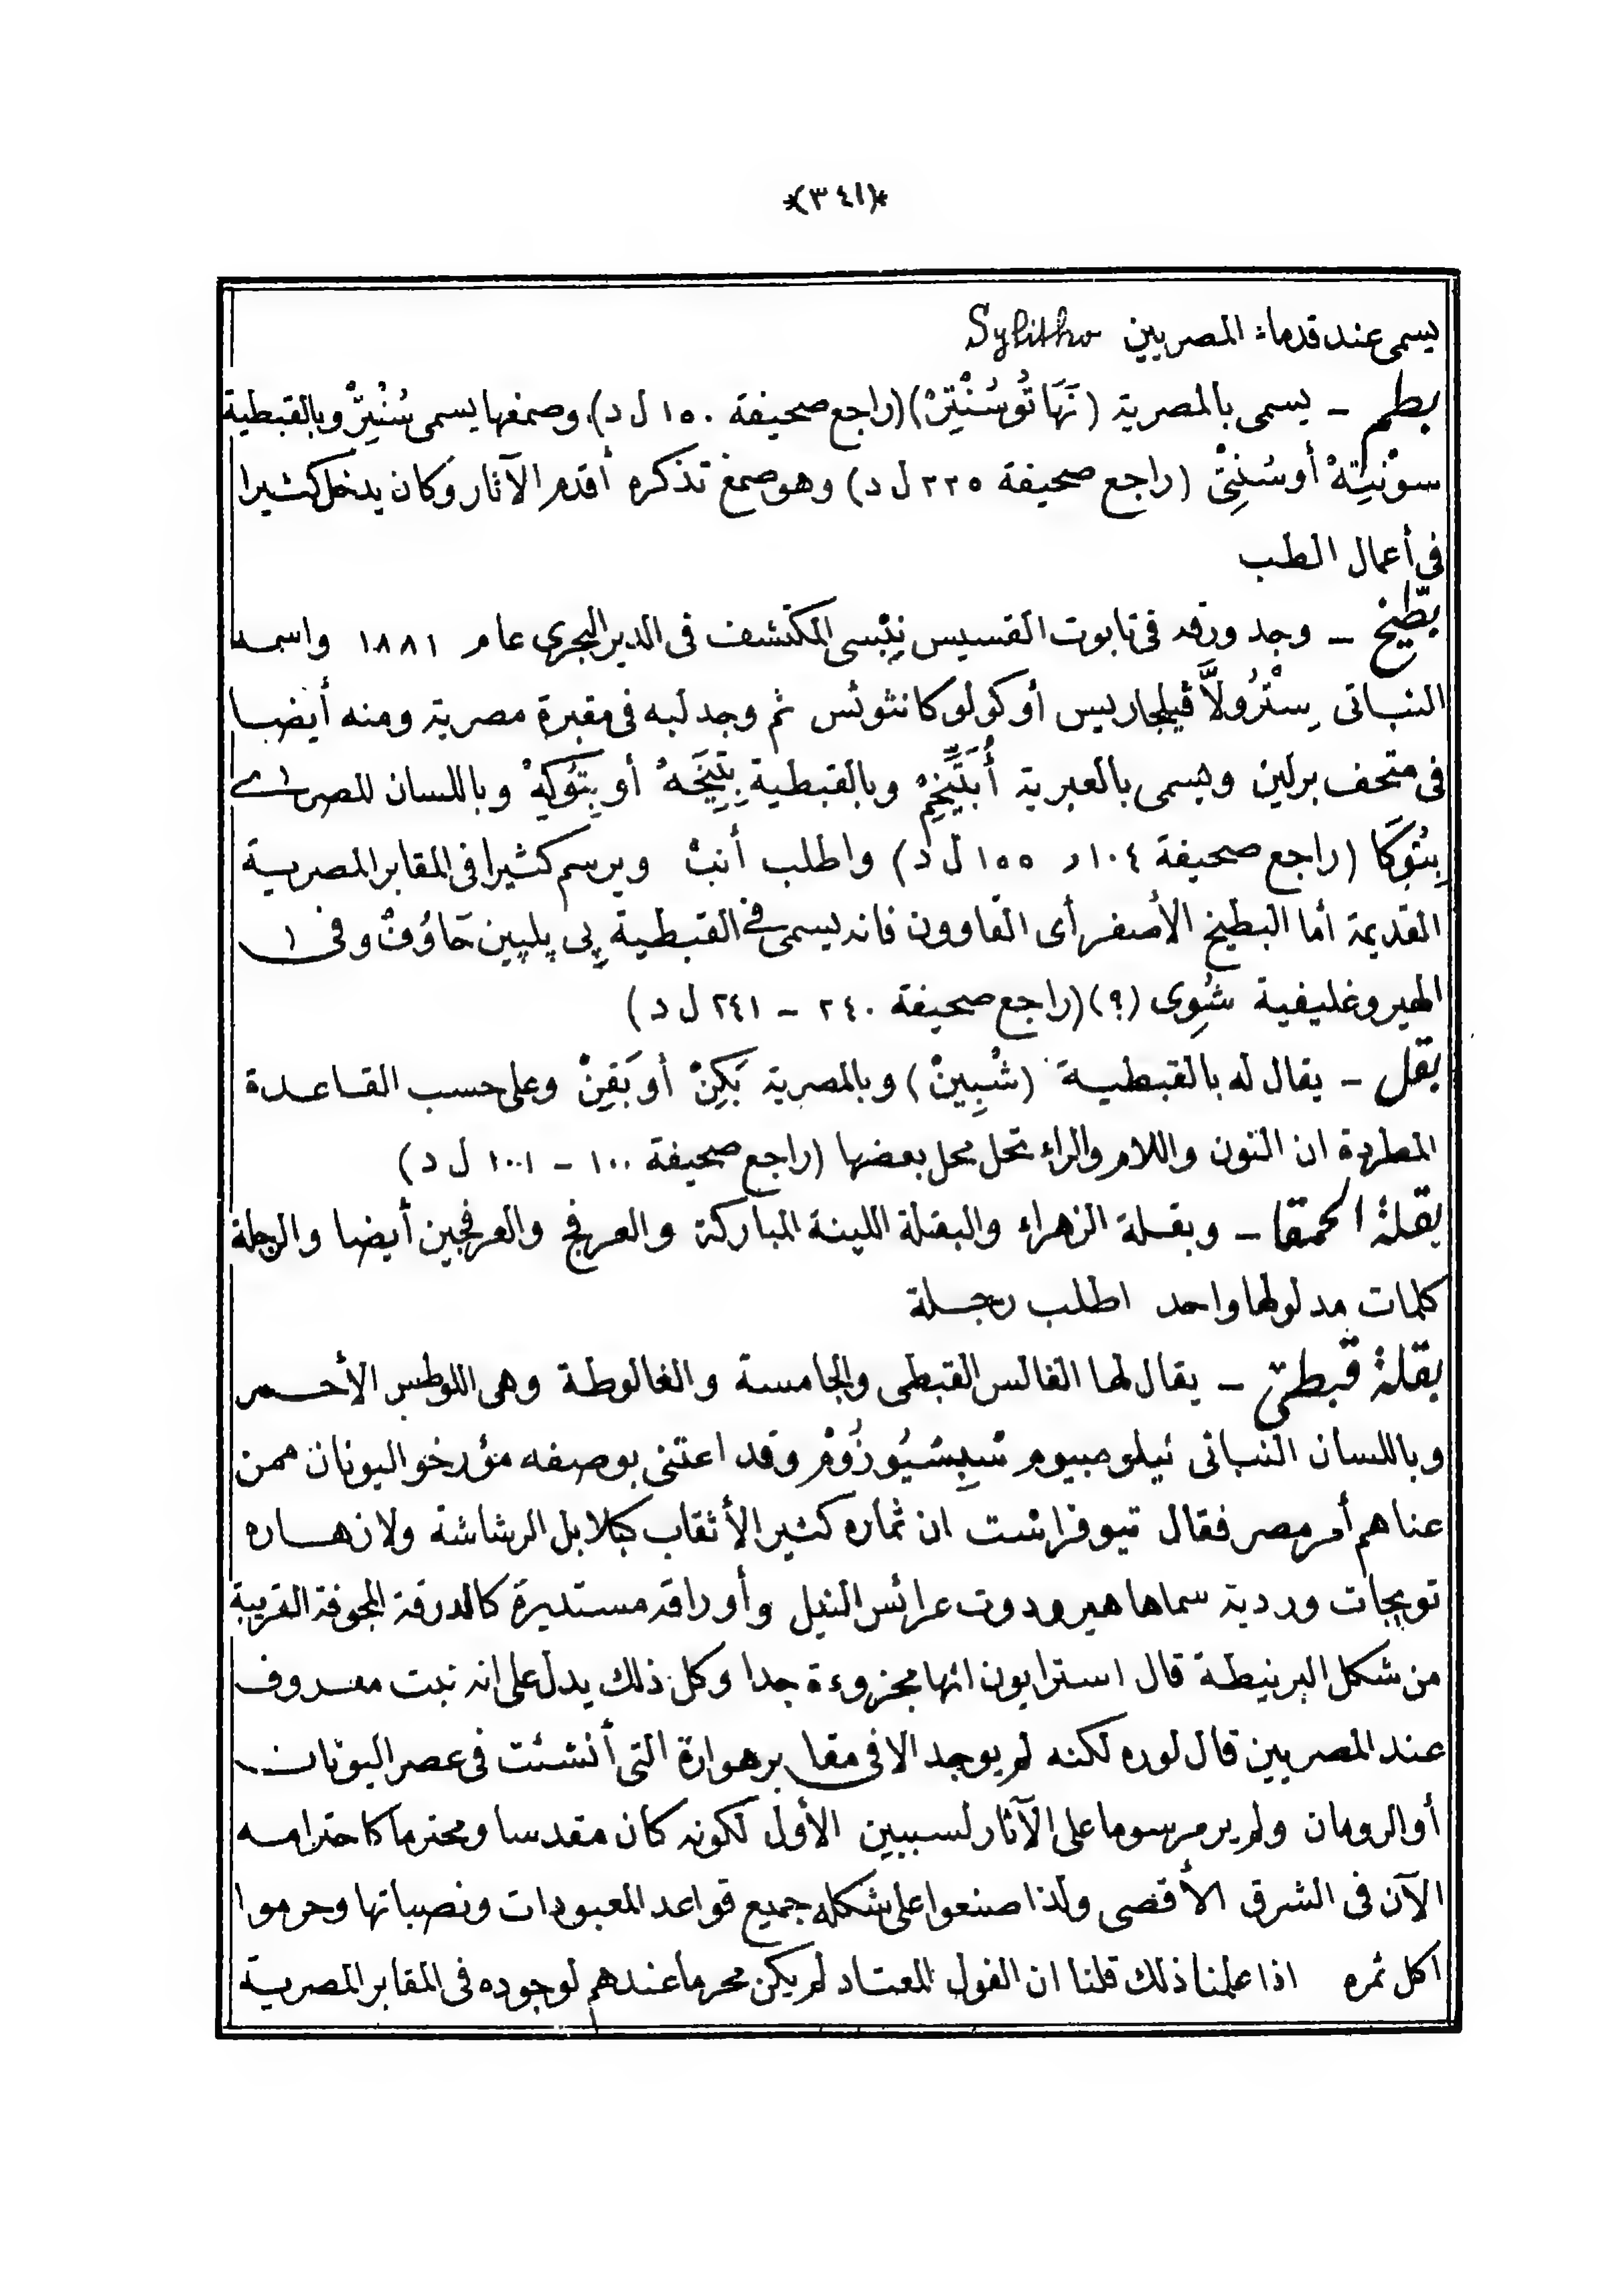 *(٣٤١)*
يسمى عند قدماء المصريين Sylitho
بطم ـ يسمى بالمصرية (نَهَا تُوسُنْتِرْ) (راجع صحيفة ١٥٠ ل د) وصمغها يسمى سُنْتِرْ وبالقبطية
سوْنتِهْ أو سُنْتِى (راجع صحيفة ٢٢٥ ل د) وهو صمغ تذكره أقدم الآثار وكان يدخل كثيرا
فى أعمال الطب
بطّيخ ـ وجد ورقه فى تابوت القسيس نِبْسى المكتشف فى الدير البحرى عام ١٨٨١ واسمه
النباتى سِتْرُولاَّ ڤيلجاريس أو كولوكانثوئس ثم وجد لبه فى مقبرة مصرية ومنه أيضا
فى متحف برلين ويسمى بالعبرية أَبَتِّخِمْ وبالقبطية بِتِيخَهْ أو بِتُوكِهْ وباللسان المصرى
بِتُوكَا (راجع صحيفة ١٠٤ ر ١٥٥ ل د) واطلب أنبْ ويرسم كثيرا فى المقابر المصرية
القديمة أما البطيخ الأصفر أى القاوون فانه يسمى فى القبطية پى پلپين حَاوُفْ وفى
الهيروغليفية شُوِى (؟) (راجع صحيفة ٢٤٠ ـ ٢٤١ ل د)
بقل ـ يقال له بالقبطية (شْبِينْ) وبالمصرية بَكِنْ أو بَقِنْ وعلى حسب القاعدة
المطردة ان النون واللام والراء تحل محل بعضها (راجع صحيفة ١٠٠ ـ ١٠٠١ ل د)
بقلة الحمقا ـ وبقلة الزهراء والبقلة اللينة المباركة والعرفج والعرفجين أيضا والرجلة
كلمات مدلولها واحد اطلب رجلة
بقلة قبطىّ ـ يقال لها الفالس القبطى والجامسة والغالوطة وهى اللوطس الأحمر
وباللسان النباتى نيلومبيوم سْبِسْيُوزُومْ وقد اعتنى بوصفه مؤرخو اليونان ممن
عناهم أمر مصر فقال تيوفراشت ان ثماره كثير الأثقاب كالابل الرشاشة ولازهاره
تويجات وردية سماها هيرودوت عرائس النيل وأوراقه مستديرة كالدرقة المجوفة القريبة
من شكل البرنيطة قال استرابون انها مجزوءة جدا وكل ذلك يدل على انه نبت معروف
عند المصريين قال لوره لكنه لم يوجد الا فى مقابر هوارة التى أنشئت فى عصر اليونان
أو الرومان ولم ير مرسوما على الآثار لسببين الأول لكونه كان مقدسا ومحترما كاحترامه
الآن فى الشرق الأقصى ولذا صنعوا على شكله جميع قواعد المعبودات ونصباتها وحرموا
اكل ثمره اذا علمنا ذلك قلنا ان الفول المعتاد لم يكن محرما عندهم لوجوده فى المقابر المصرية